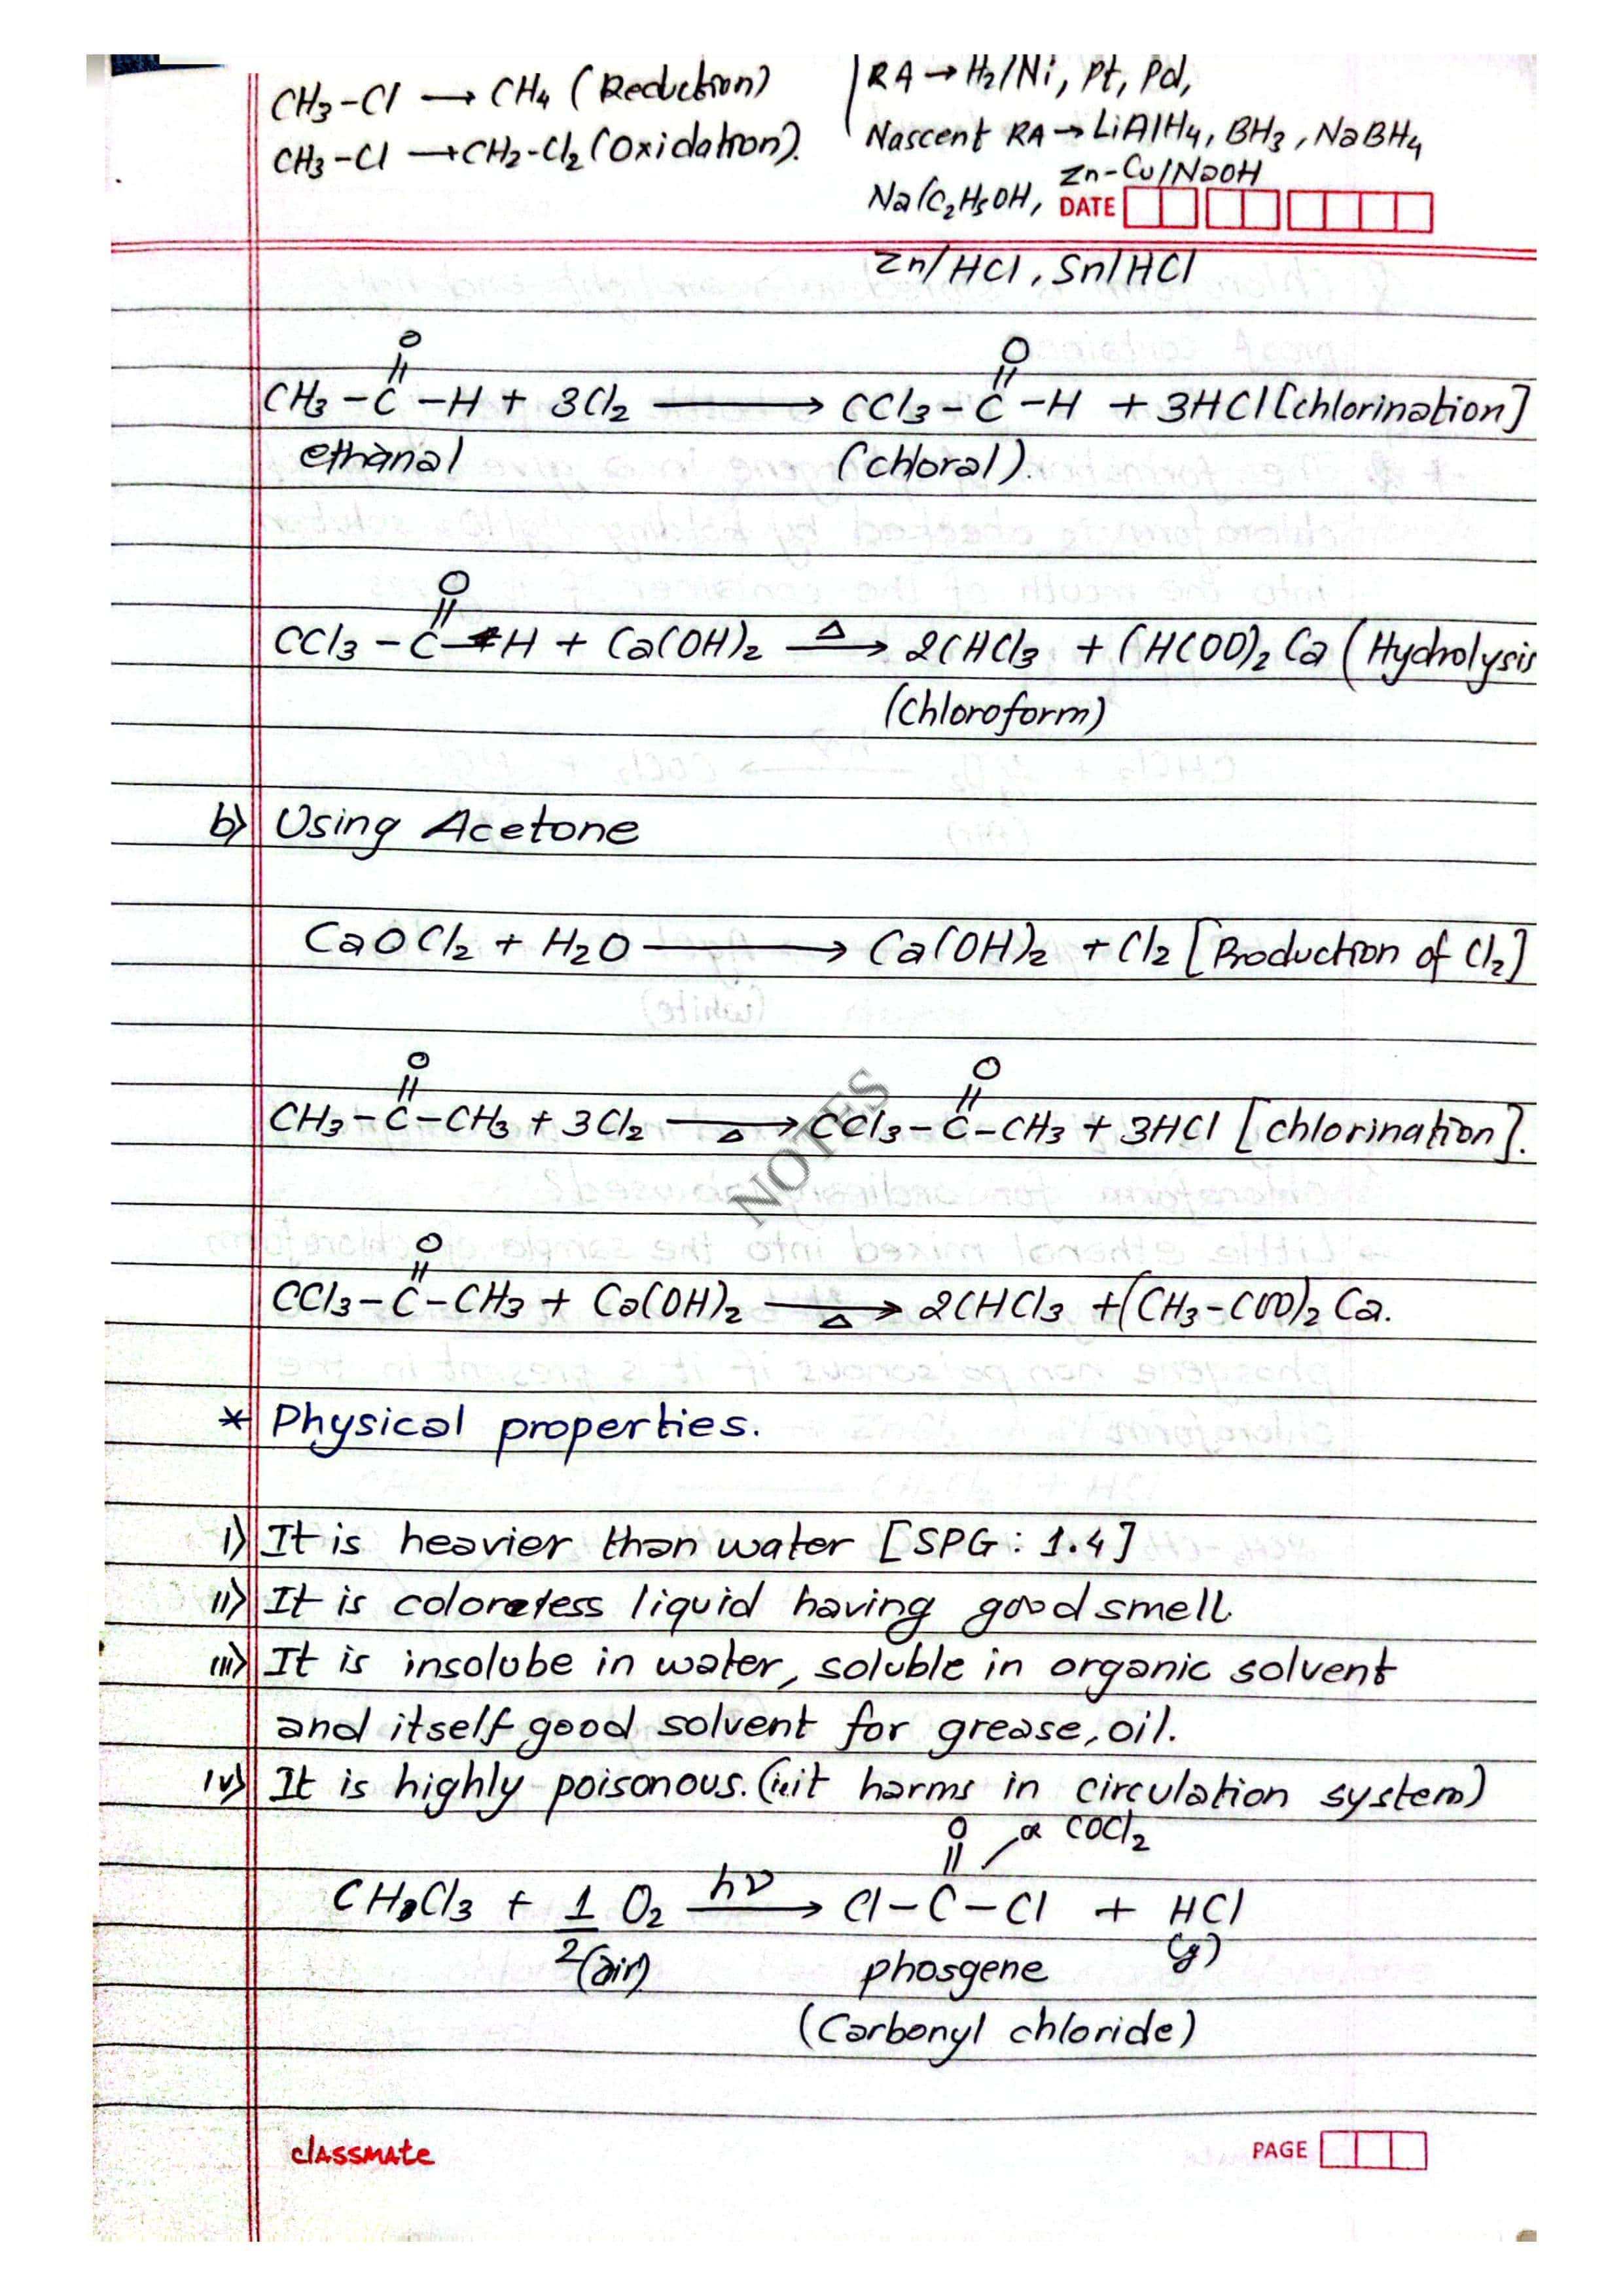 CH3-Cl → CH4 (Reduction)
CH3-Cl → CH2-Cl2 (Oxidation).
RA → H2/Ni, Pt, Pd,
Nascent RA → LiAlH4, BH3, NaBH4
Zn-Cu/NaOH
Na/C2H5OH, DATE
Zn/HCl, Sn/HCl
O
O
CH3-C-H + 3Cl2 → CCl3-C-H + 3HCl [chlorination]
ethanal (chloral).
O
CCl3-C-H + Ca(OH)2 Δ→ 2CHCl3 + (HCOO)2 Ca (Hydrolysis
(Chloroform)
b) Using Acetone
CaOCl2 + H2O → Ca(OH)2 + Cl2 [Production of Cl2]
O O
CH3-C-CH3 + 3Cl2 →Δ CCl3-C-CH3 + 3HCl [chlorination].
NOTES
O
CCl3-C-CH3 + Ca(OH)2 →Δ 2CHCl3 + (CH3-COO)2 Ca.
* Physical properties.
i) It is heavier than water [SPG: 1.4]
ii) It is colorless liquid having good smell.
iii) It is insolube in water, soluble in organic solvent
and itself good solvent for grease, oil.
iv) It is highly poisonous. (it harms in circulation system)
O COCl2
CHCl3 + 1/2 O2 hν→ Cl-C-Cl + HCl
(air) phosgene (g)
(Carbonyl chloride)
classmate PAGE